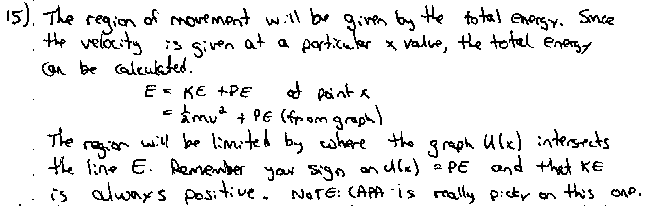 15). The region of movement will be given by the total energy. Since
the velocity is given at a particular x value, the total energy
can be calculated.
E = KE + PE at point x
= ½mv² + PE (from graph)
The region will be limited by where the graph U(x) intersects
the line E. Remember your sign on U(x) = PE and that KE
is always positive. NOTE: CAPA is really picky on this one.